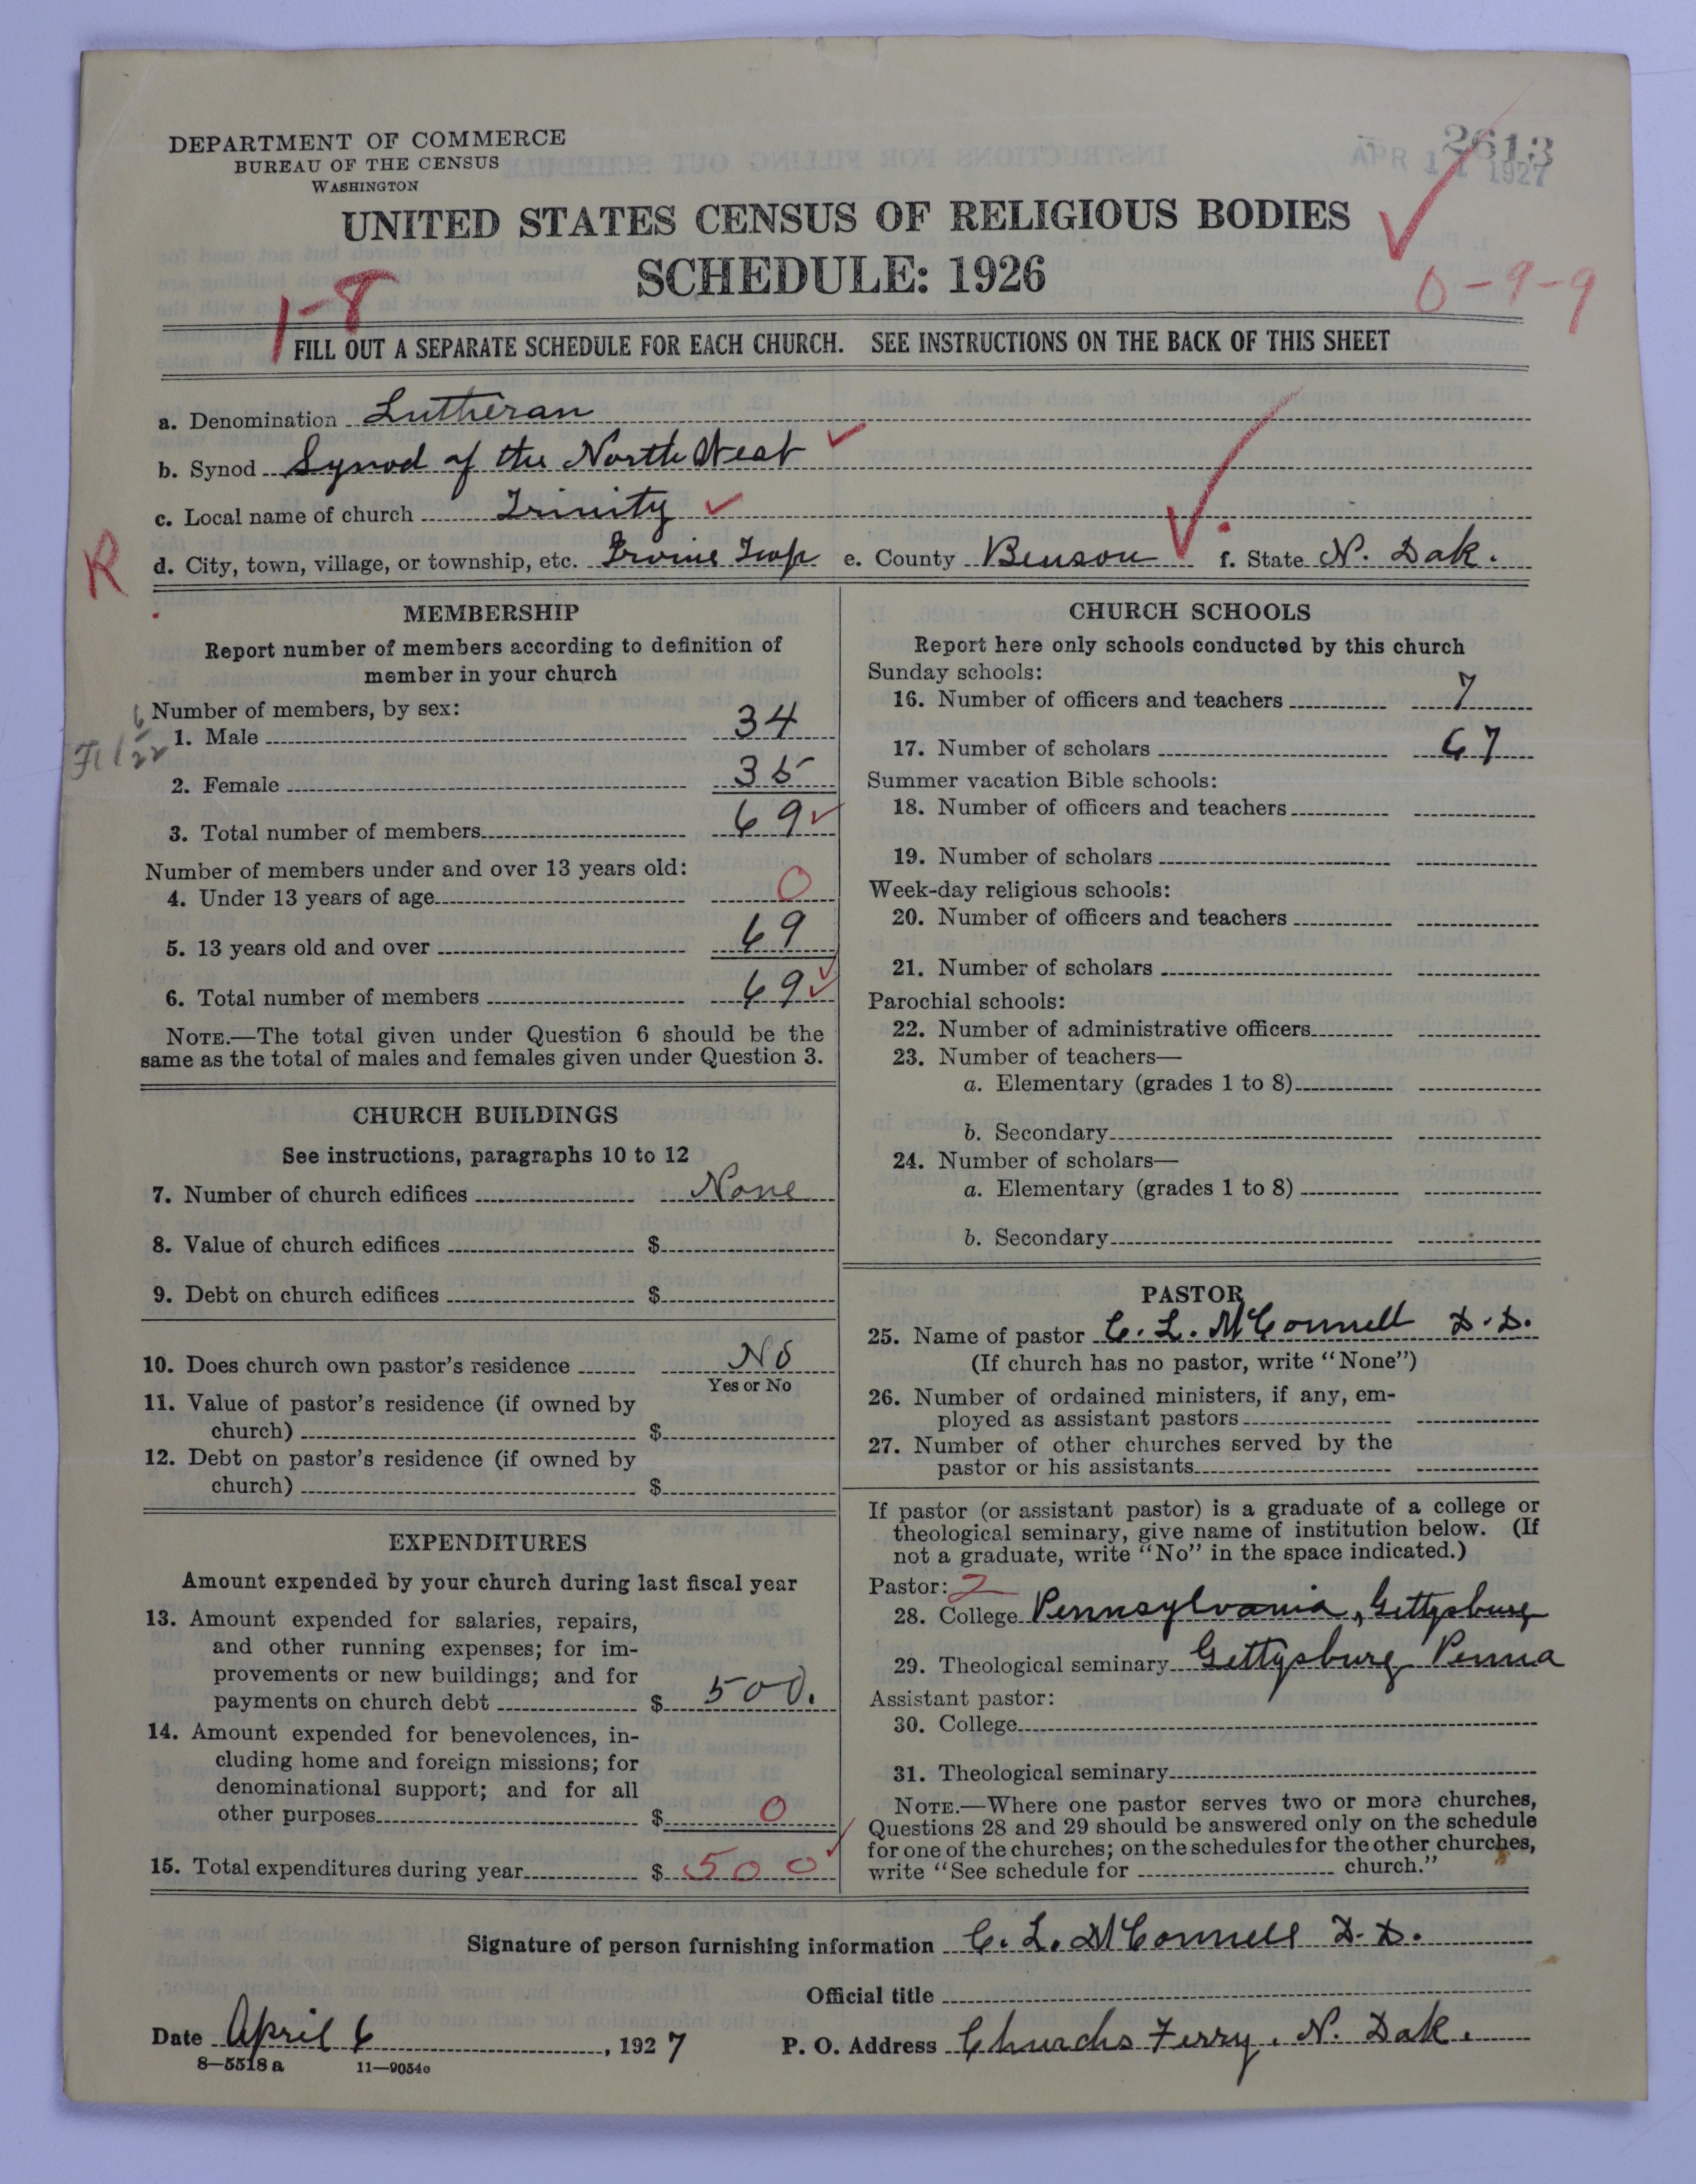 DEPARTMENT OF COMMERCE
BUREAU OF THE CENSUS
WASHINGTON
2613
APR 11 1927
UNITED STATES CENSUS OF RELIGIOUS BODIES
SCHEDULE: 1926
1-8
0-9-9
FILL OUT A SEPARATE SCHEDULE FOR EACH CHURCH. SEE INSTRUCTIONS ON THE BACK OF THIS SHEET
a. Denomination Lutheran
b. Synod Synod of the North West
c. Local name of church Trinity
R
d. City, town, village, or township, etc. Irvine Twp e. County Benson f. State N. Dak.
MEMBERSHIP
Report number of members according to definition of
member in your church
Number of members, by sex:
1. Male 34
2. Female 35
3. Total number of members 69
Number of members under and over 13 years old:
4. Under 13 years of age 0
5. 13 years old and over 69
6. Total number of members 69
NOTE.—The total given under Question 6 should be the
same as the total of males and females given under Question 3.
CHURCH BUILDINGS
See instructions, paragraphs 10 to 12
7. Number of church edifices None
8. Value of church edifices $
9. Debt on church edifices $
10. Does church own pastor's residence No
Yes or No
11. Value of pastor's residence (if owned by
church) $
12. Debt on pastor's residence (if owned by
church) $
EXPENDITURES
Amount expended by your church during last fiscal year
13. Amount expended for salaries, repairs,
and other running expenses; for im-
provements or new buildings; and for
payments on church debt $ 500.
14. Amount expended for benevolences, in-
cluding home and foreign missions; for
denominational support; and for all
other purposes $ 0
15. Total expenditures during year $ 500
CHURCH SCHOOLS
Report here only schools conducted by this church
Sunday schools:
16. Number of officers and teachers 7
17. Number of scholars 67
Summer vacation Bible schools:
18. Number of officers and teachers
19. Number of scholars
Week-day religious schools:
20. Number of officers and teachers
21. Number of scholars
Parochial schools:
22. Number of administrative officers
23. Number of teachers—
a. Elementary (grades 1 to 8)
b. Secondary
24. Number of scholars—
a. Elementary (grades 1 to 8)
b. Secondary
PASTOR
25. Name of pastor C. L. McConnell D.D.
(If church has no pastor, write "None")
26. Number of ordained ministers, if any, em-
ployed as assistant pastors
27. Number of other churches served by the
pastor or his assistants
If pastor (or assistant pastor) is a graduate of a college or
theological seminary, give name of institution below. (If
not a graduate, write "No" in the space indicated.)
Pastor: 2
28. College Pennsylvania, Gettysburg
29. Theological seminary Gettysburg Penna
Assistant pastor:
30. College
31. Theological seminary
NOTE.—Where one pastor serves two or more churches,
Questions 28 and 29 should be answered only on the schedule
for one of the churches; on the schedules for the other churches,
write "See schedule for church."
Signature of person furnishing information C. L. McConnell D.D.
Official title
Date April 6, 1927 P. O. Address Churchs Ferry, N. Dak.
8-5518 a 11-9054c